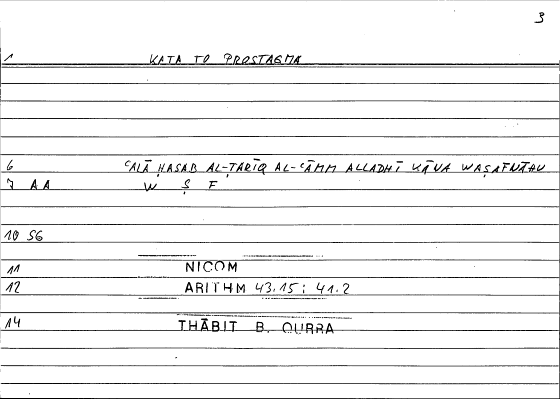 3
1 KATA TO PROSTAGMA
6 ʿALĀ ḤASAB AL-ṬARĪQ AL-ʿĀMM ALLADHĪ KĀNA WAṢAFNĀHU
7 AA W Ṣ F
10 S6
11 NICOM
12 ARITHM 43.15; 41.2
14 THĀBIT B. QURRA